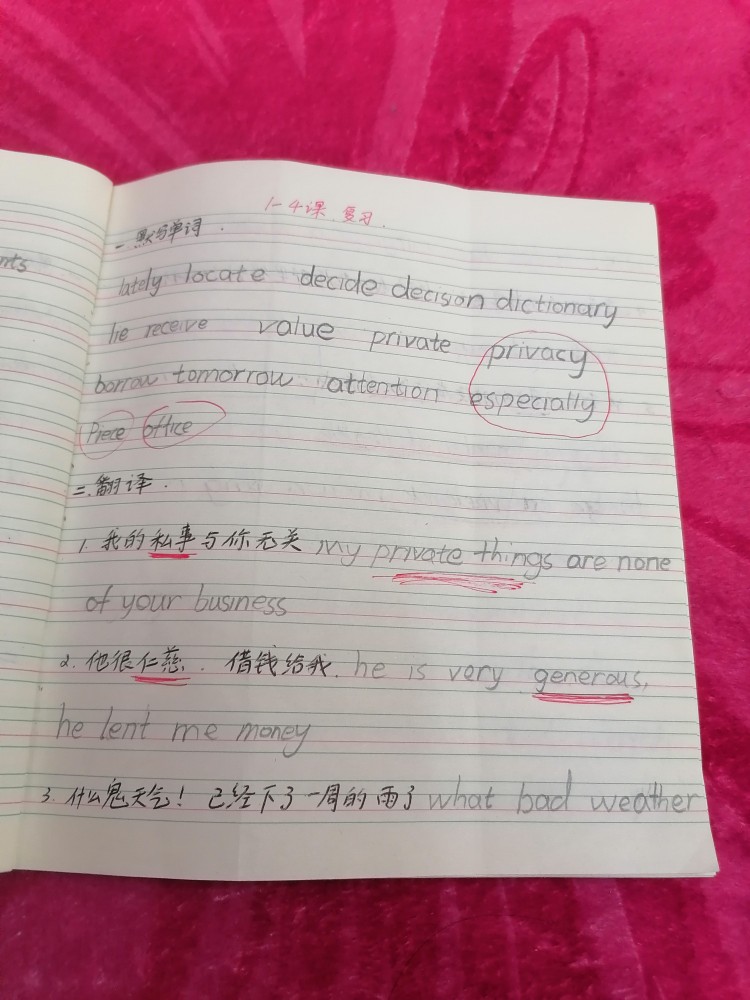 1-4课 复习.
nts
一 默写单词.
lately locate decide decision dictionary
lie receive value private privacy
borrow tomorrow attention especially
Piece office
二.翻译.
1. 我的私事与你无关 my private things are none
of your business
2. 他很仁慈. 借钱给我. he is very generous,
he lent me money
3. 什么鬼天气! 已经下了一周的雨了 what bad weather